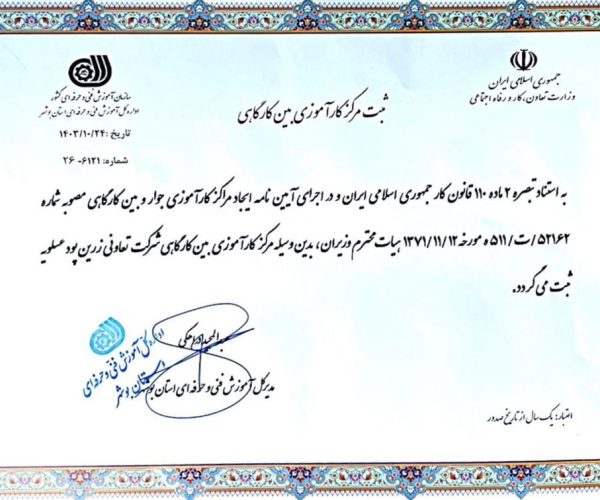 جمهوری اسلامی ایران
وزارت تعاون، کار و رفاه اجتماعی
سازمان آموزش فنی و حرفه ای کشور
اداره کل آموزش فنی و حرفه ای استان بوشهر
تاریخ: ۱۴۰۳/۱۰/۲۴
شماره: ۶۱۲۱-۲۶
ثبت مرکز کارآموزی بین کارگاهی
به استناد تبصره ۲ ماده ۱۱۰ قانون کار جمهوری اسلامی ایران و در اجرای آیین نامه ایجاد مراکز کارآموزی جوار و بین کارگاهی مصوبه شماره
۵۲۱۶۲/ت/۵۱۱ ه مورخه ۱۳۷۱/۱۱/۱۲ هیات محترم وزیران، بدین وسیله مرکز کارآموزی بین کارگاهی شرکت تعاونی زرین پود عسلویه
ثبت می گردد.
مدیرکل آموزش فنی و حرفه ای استان بوشهر
اداره کل آموزش فنی و حرفه ای
استان بوشهر
اعتبار: یک سال از تاریخ صدور